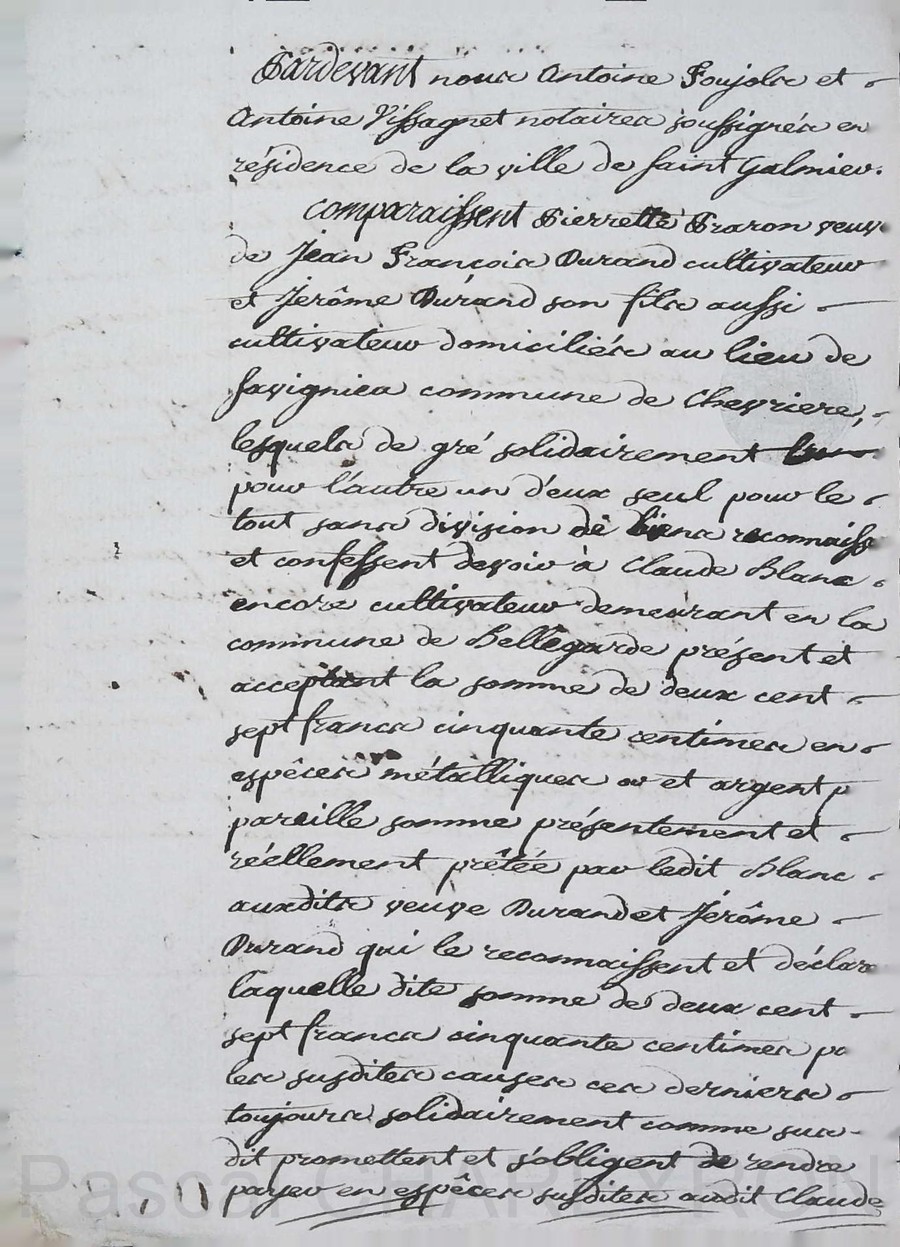 Pardevant nous Antoine Foujols et
Antoine Vissagnet notaires soussignés en
résidence de la ville de saint Galmier.
Comparaissent Pierrette Fraron veuve
de Jean François Durand cultivateur
et Jérôme Durand son fils aussi
cultivateur domiciliés au lieu de
savignieu commune de Chevriere,
lesquels de gré solidairement l'un
pour l'autre un d'eux seul pour le
tout sans division de biens reconnaiss
et confessent devoir à Claude Blanc
encore cultivateur demeurant en la
commune de Bellegarde présent et
acceptant la somme de deux cent
sept francs cinquante centimes en
espêces métalliques or et argent p
pareille somme présentement et
réellement prêtée par ledit Blanc
auxdits veuve Durand et Jérôme
Durand qui le reconnaissent et déclare
laquelle dite somme de deux cent
sept francs cinquante centimes po
les susdites causes ces derniers
toujours solidairement comme sus-
dit promettent et s'obligent de rendre
payer en espêces susdites audit Claude
Pascal CHAREYRON